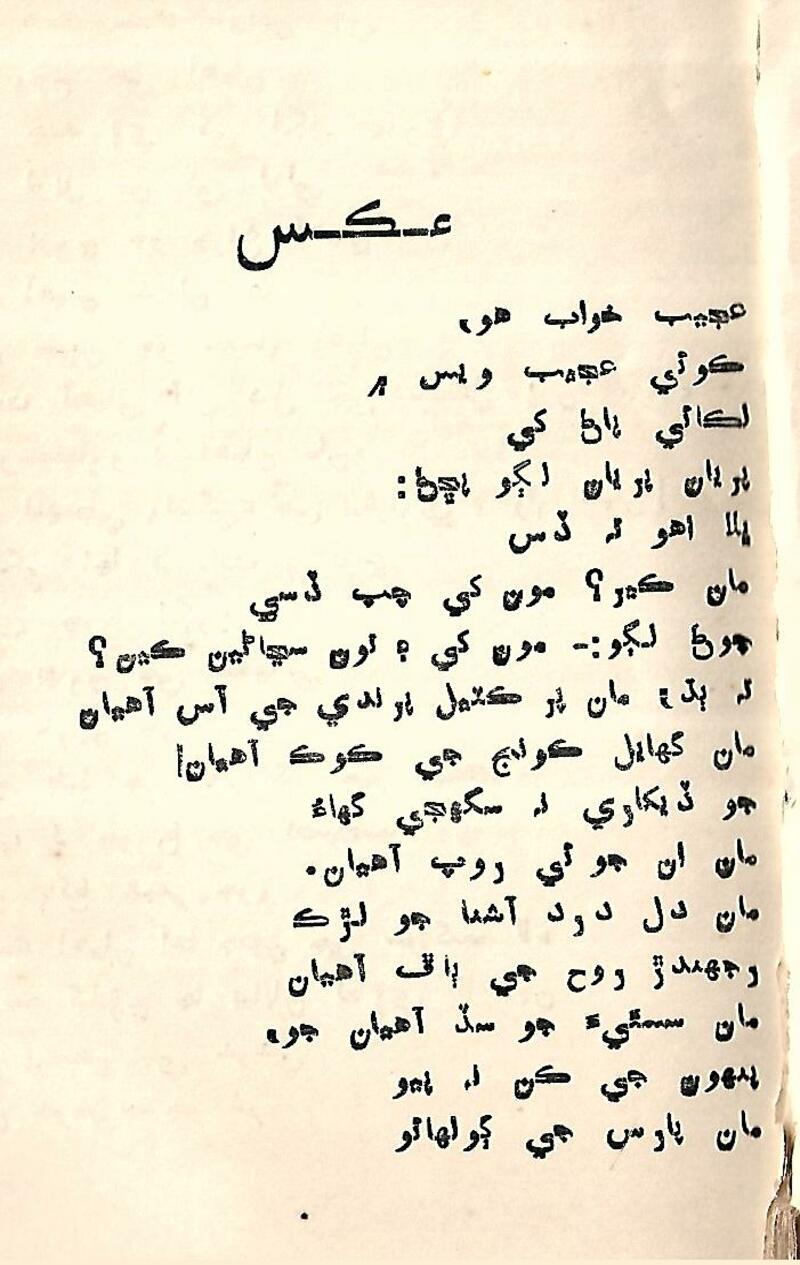 عڪس
عجيب خواب هو،
ڪوئي عجيب ويس ۾
لڪائي پاڻ کي
پريان پريان لڳو پڇڻ:
ڀلا اهو تہ ڏس
مان ڪير؟ مون کي چپ ڏسي
چوڻ لڳو:- مون کي ۽ تون سڃاڻين ڪين؟
تہ ٻڌ؛ مان پر ڪٽيل پرندي جي آس آهيان
مان گهايل ڪونج جي ڪوڪ آهيان!
جو ڏيکاري نہ سگهجي گهاءُ
مان ان جو ئي روپ آهيان.
مان دل درد آشنا جو لڙڪ
رجهندڙ روح جي ٻاڦ آهيان
مان سسئيءَ جو سڏ آهيان جو،
پنهون جي ڪن نہ پيو
مان پارس جي ڳولهائو